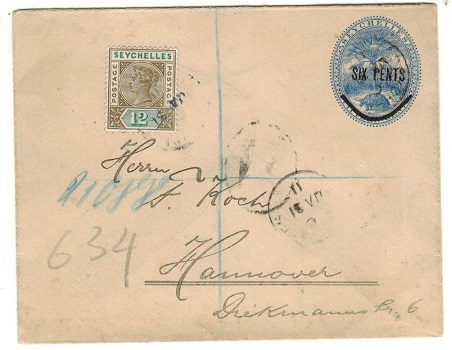 SEYCHELLES
POSTAGE
POSTAGE
12
SEYCHELLES
SIX CENTS
Herrn
F. Koch
634
Hannover
Diekmannstr. 6